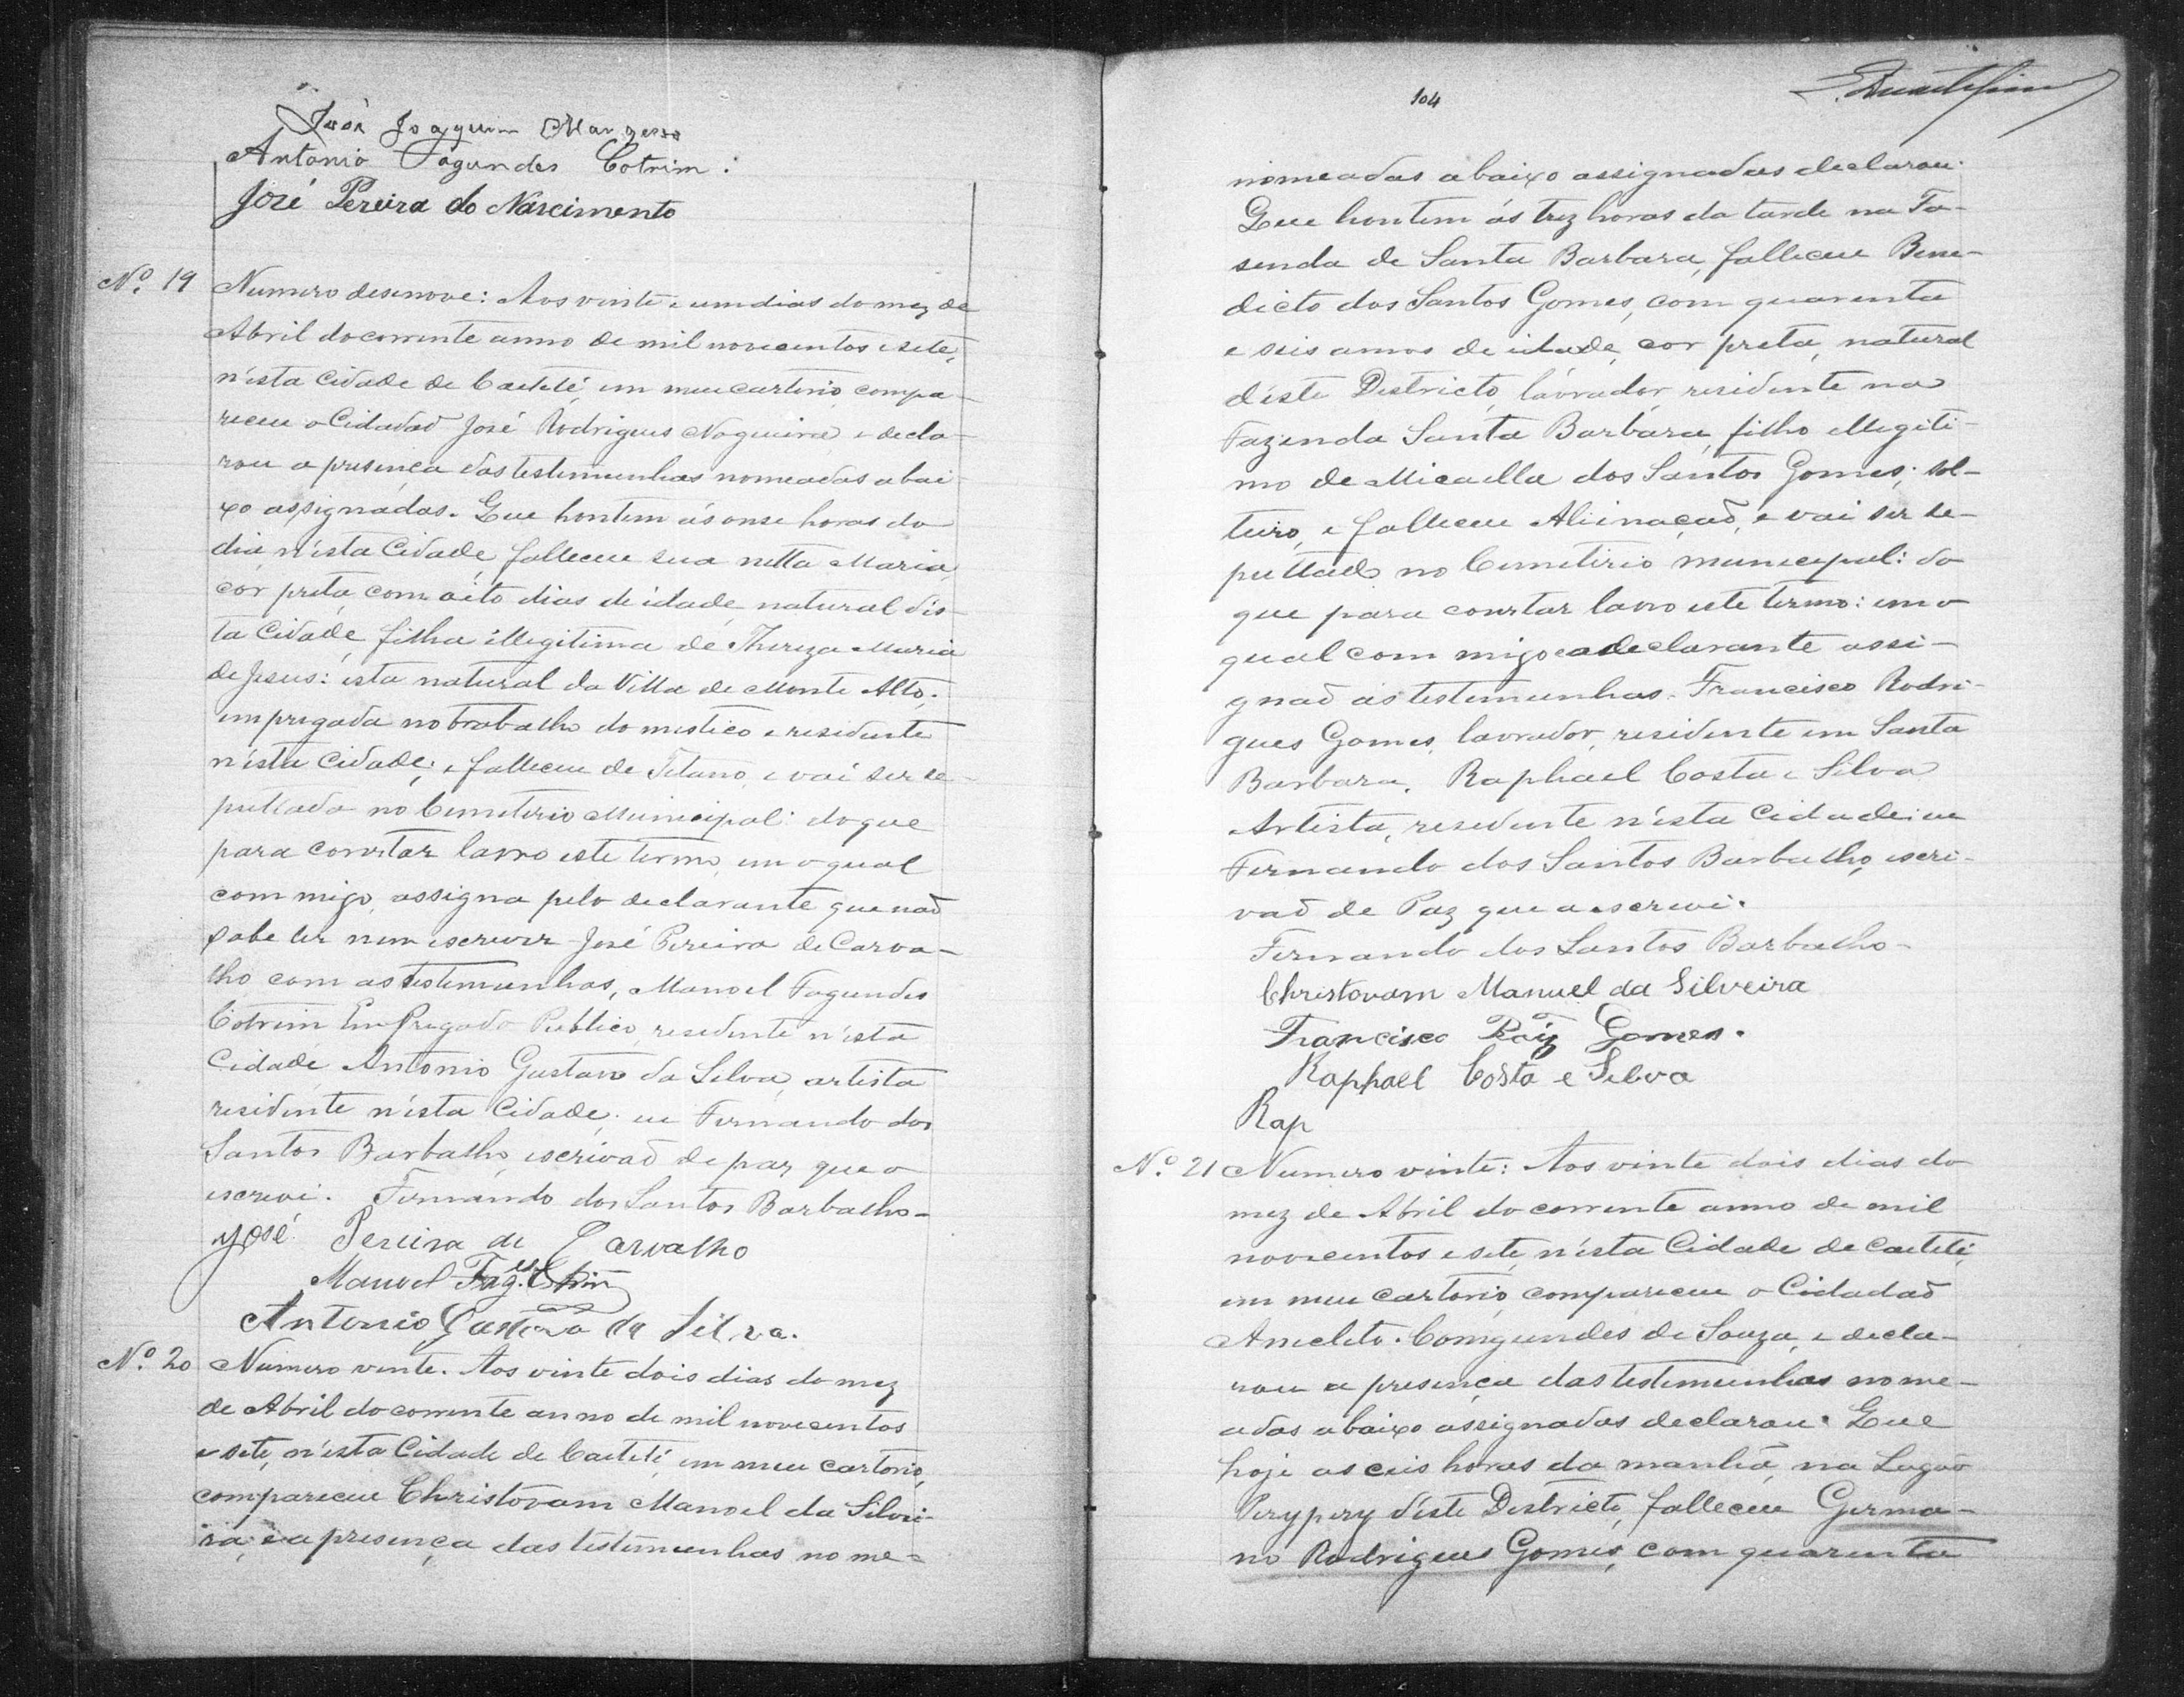 José Joaquim
Antonio Fagundes Cotrim.
José Pereira do Nascimento
Nº. 19 Numero desenove: Aos vinte e um dias do mez de
Abril do corrente anno de mil novecentos e sete,
n'esta Cidade de Caeteté, em meu cartorio compa-
receu o Cidadaõ José Rodrigues Nogueira e decla-
rou a presença das testemunhas nomeadas abai
xo assignadas. Que hontem ás onse horas do
dia, n'esta Cidade, falleceu sua netta Maria,
cor preta com oito dias de idade, natural dés-
ta Cidade, filha illegitima de Thereza Maria
de Jesus: ésta natural da Villa de Monte Alto,
empregada no trabalho domestico e residente
n'ésta Cidade; e falleceu de Tetano, e vai ser se-
pultada no Cemiterio Municipal: do que
para constar lavro este termo, em o qual
com migo, assigna pelo declarante que naõ
sabe ler nem escrever José Pereira de Carva-
lho com as testemunhas, Manoel Fagundes
Cotrim Empregado Publico, residente n'ésta
Cidade Antonio Gustavo da Silva, artista
residente n'ésta Cidade; eu Fernando dos
Santos Barbalho, escrivaõ de paz que o
escrevi. Fernando dos Santos Barbalho-
José Pereira de Carvalho
Manoel Fag.es Cotrim
Antonio Gustavo da Silva.
Nº. 20 Numero vinte. Aos vinte dois dias do mez
de Abril do corrente anno de mil novecentos
e sete, n'ésta Cidade de Caeteté, em meu cartorio,
compareceu Christovam Manoel da Silvei-
ra, e a presença das testemunhas no me-
104
nomeadas abaixo assignadas declarou.
Que hontem ás trez horas da tarde na Fa-
senda de Santa Barbara, falleceu Bene-
dicto dos Santos Gomes, com quarenta
e seis annos de idade, cor preta, natural
déste Destricto, lavrador residente na
Fazenda Santa Barbara, filho illegiti-
mo de Micaella dos Santos Gomes, sol-
teiro, e falleceu Alienaçaõ, e vai ser se-
pultado no Cemiterio municepal: do
que para constar lavro este termo: em o
qual com migo e o declarante assi-
gnaõ as testemunhas. Francisco Rodri-
gues Gomes, lavrador, residente em Santa
Barbara, Raphael Costa e Silva
Artista, resedente n'ésta Cidade: eu
Fernando dos Santos Barbalho, escri-
vaõ de Paz que a escrevi.
Fernando dos Santos Barbalho-
Christovam Manuel da Silveira
Francisco Roiz Gomes.
Raphael Costa e Silva
Rap
Nº. 21 Numero vinte: Aos vinte dois dias do
mez de Abril do corrente anno de mil
novecentos e sete, n'ésta Cidade de Caeteté,
em meu cartorio, compareceu o Cidadaõ
Anecleto Comgundes de Souza, e decla-
rou a presença das testemunhas nome-
adas abaixo assignadas declarou. Que
hoje as ceis horas da manhã, na Lagoa
Perypery déste Destricto, falleceu Germa-
no Rodrigues Gomes, com quarenta